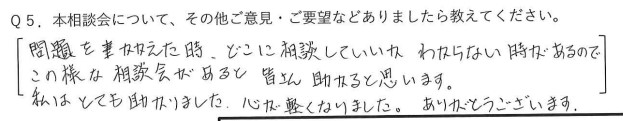 Q5．本相談会について、その他ご意見・ご要望などありましたら教えてください。
問題をかかえた時、どこに相談していいか わからない時があるので
この様な相談会があると 皆さん 助かると思います。
私は とても助かりました. 心が軽くなりました。 ありがとうございます.